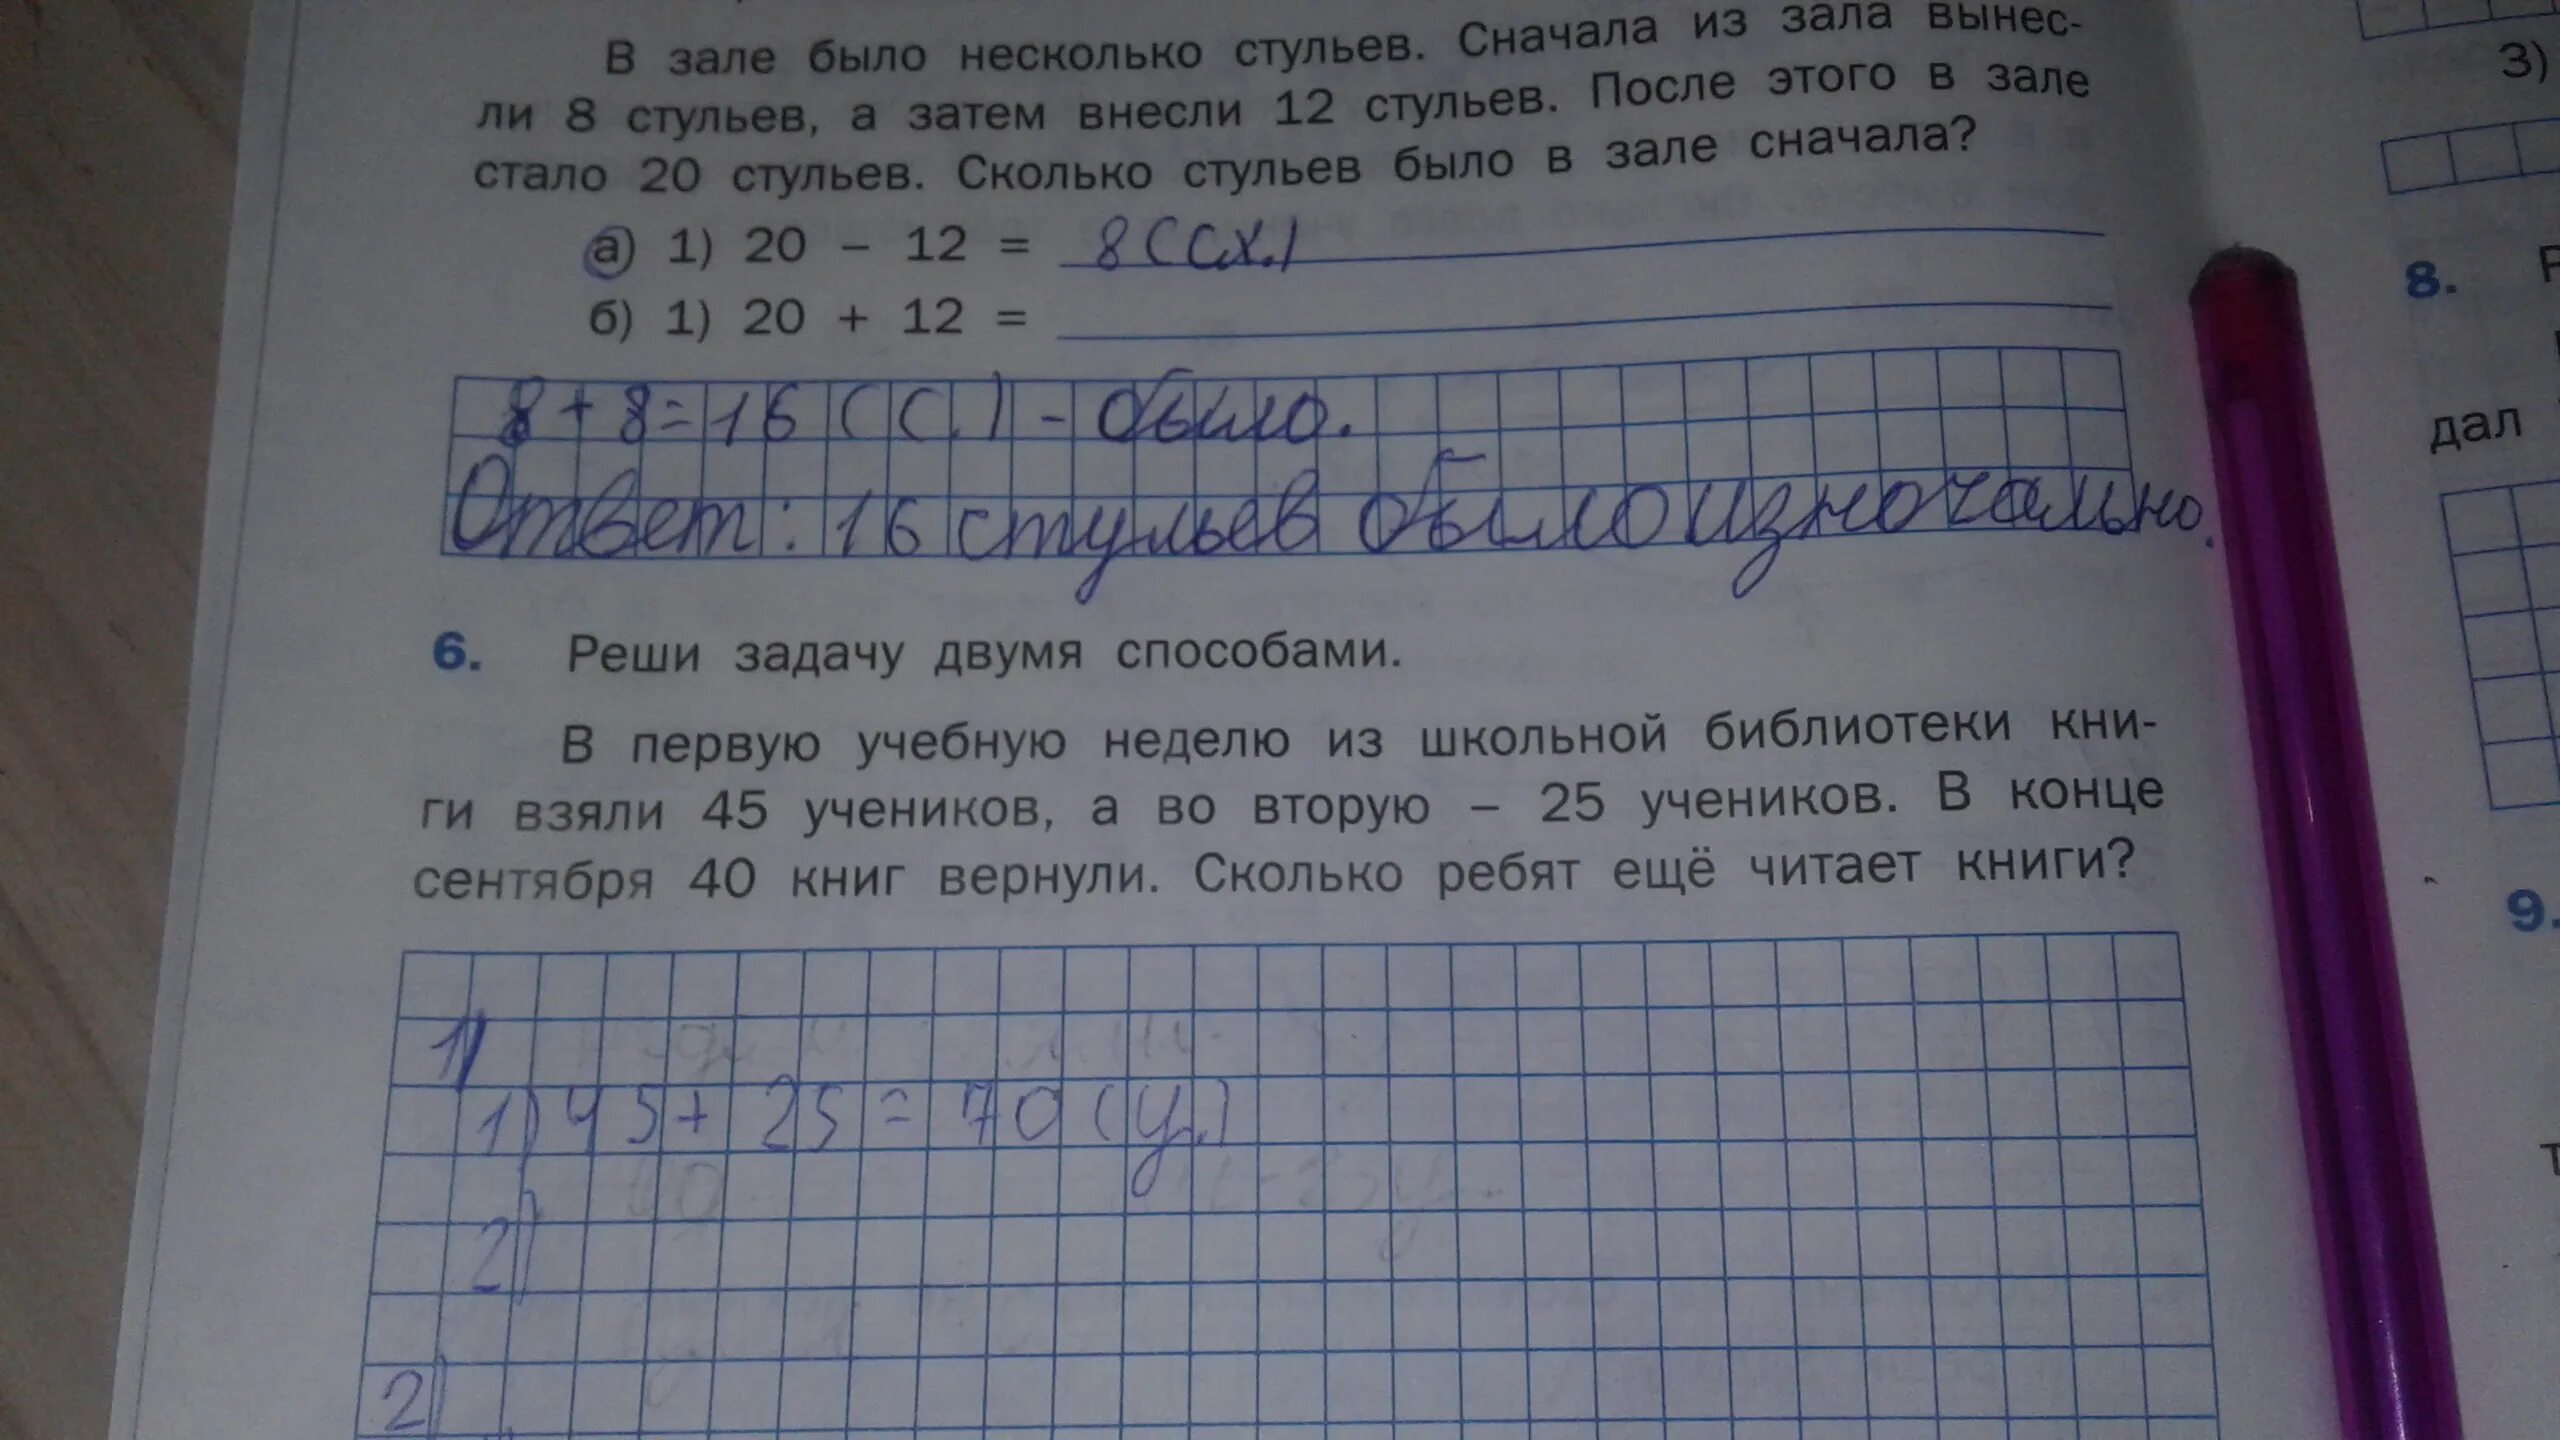 В зале было несколько стульев. Сначала из зала вынес-
ли 8 стульев, а затем внесли 12 стульев. После этого в зале
стало 20 стульев. Сколько стульев было в зале сначала?
а) 1) 20 – 12 = 8 (
б) 1) 20 + 12 =
8 + 8 = 16 (с.) - было.
Ответ: 16 стульев было изночально.
6. Реши задачу двумя способами.
В первую учебную неделю из школьной библиотеки кни-
ги взяли 45 учеников, а во вторую – 25 учеников. В конце
сентября 40 книг вернули. Сколько ребят ещё читает книги?
1)
1) 45 + 25 = 70 (у.)
2)
2)
3)
8.
дал
9.